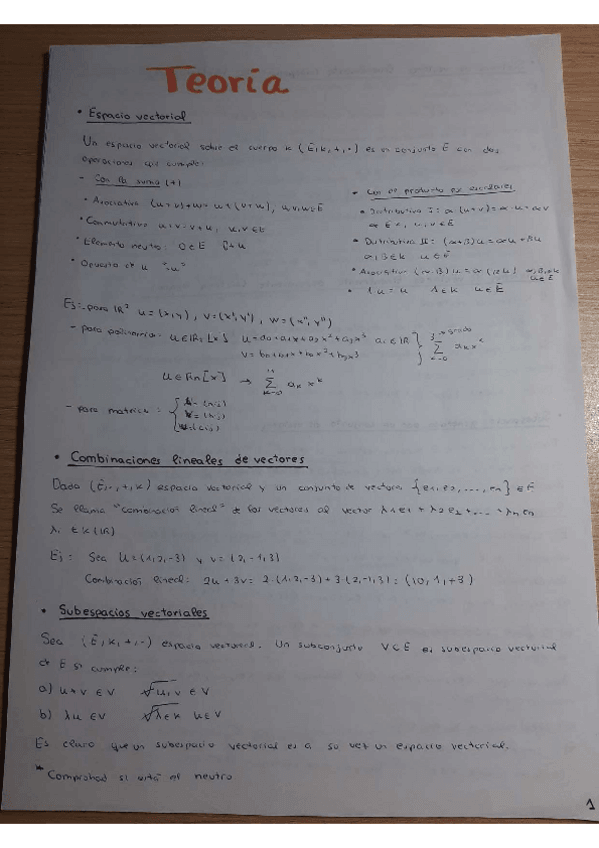 Teoría
• Espacio vectorial
Un espacio vectorial sobre el cuerpo k (E, k, +, ·) es un conjunto E con dos
operaciones que cumple:
- Con la suma (+)
• Asociativa (u+v)+w = u+(v+w), u,v,w∈E
• Conmutativa u+v = v+u, u,v∈E
• Elemento neutro: 0∈E 0+u
• Opuesto de u "-u"
• Con el producto por escalares
• Distributiva I: α(u+v)=α·u+αv
α∈k, u,v∈E
• Distributiva II: (α+β)u=αu+βu
α,β∈k u∈E
• Asociativa (α·β)u=α(βu) α,β∈k
u∈E
• 1u=u 1∈k u∈E
Ej: para ℝ² u=(x,y), v=(x',y'), w=(x'',y'')
- para polinomios: u=a0+a1x+a2x²+a3x³ ai∈ℝ
v=b0+b1x+b2x²+b3x³
→ Σ ak x^k
- para matrices:
• Combinaciones lineales de vectores
Dada (E,·,+,k) espacio vectorial y un conjunto de vectores {e1,e2,...,en}∈E
Se llama "combinación lineal" de los vectores al vector λ1e1+λ2e2+...+λnen
λi∈k(ℝ)
Ej: Sea u=(1,2,-3) y v=(2,-1,3)
Combinación lineal: 2u+3v= 2·(1,2,-3)+3·(2,-1,3)=
• Subespacios vectoriales
Sea (E,k,+,·) espacio vectorial. Un subconjunto V⊂E es subespacio vectorial
de E si cumple:
a) u+v∈V u,v∈V
b) λu∈V λ∈k u∈V
Es claro que un subespacio vectorial es a su vez un espacio vectorial.
* Comprobad si está el neutro
1